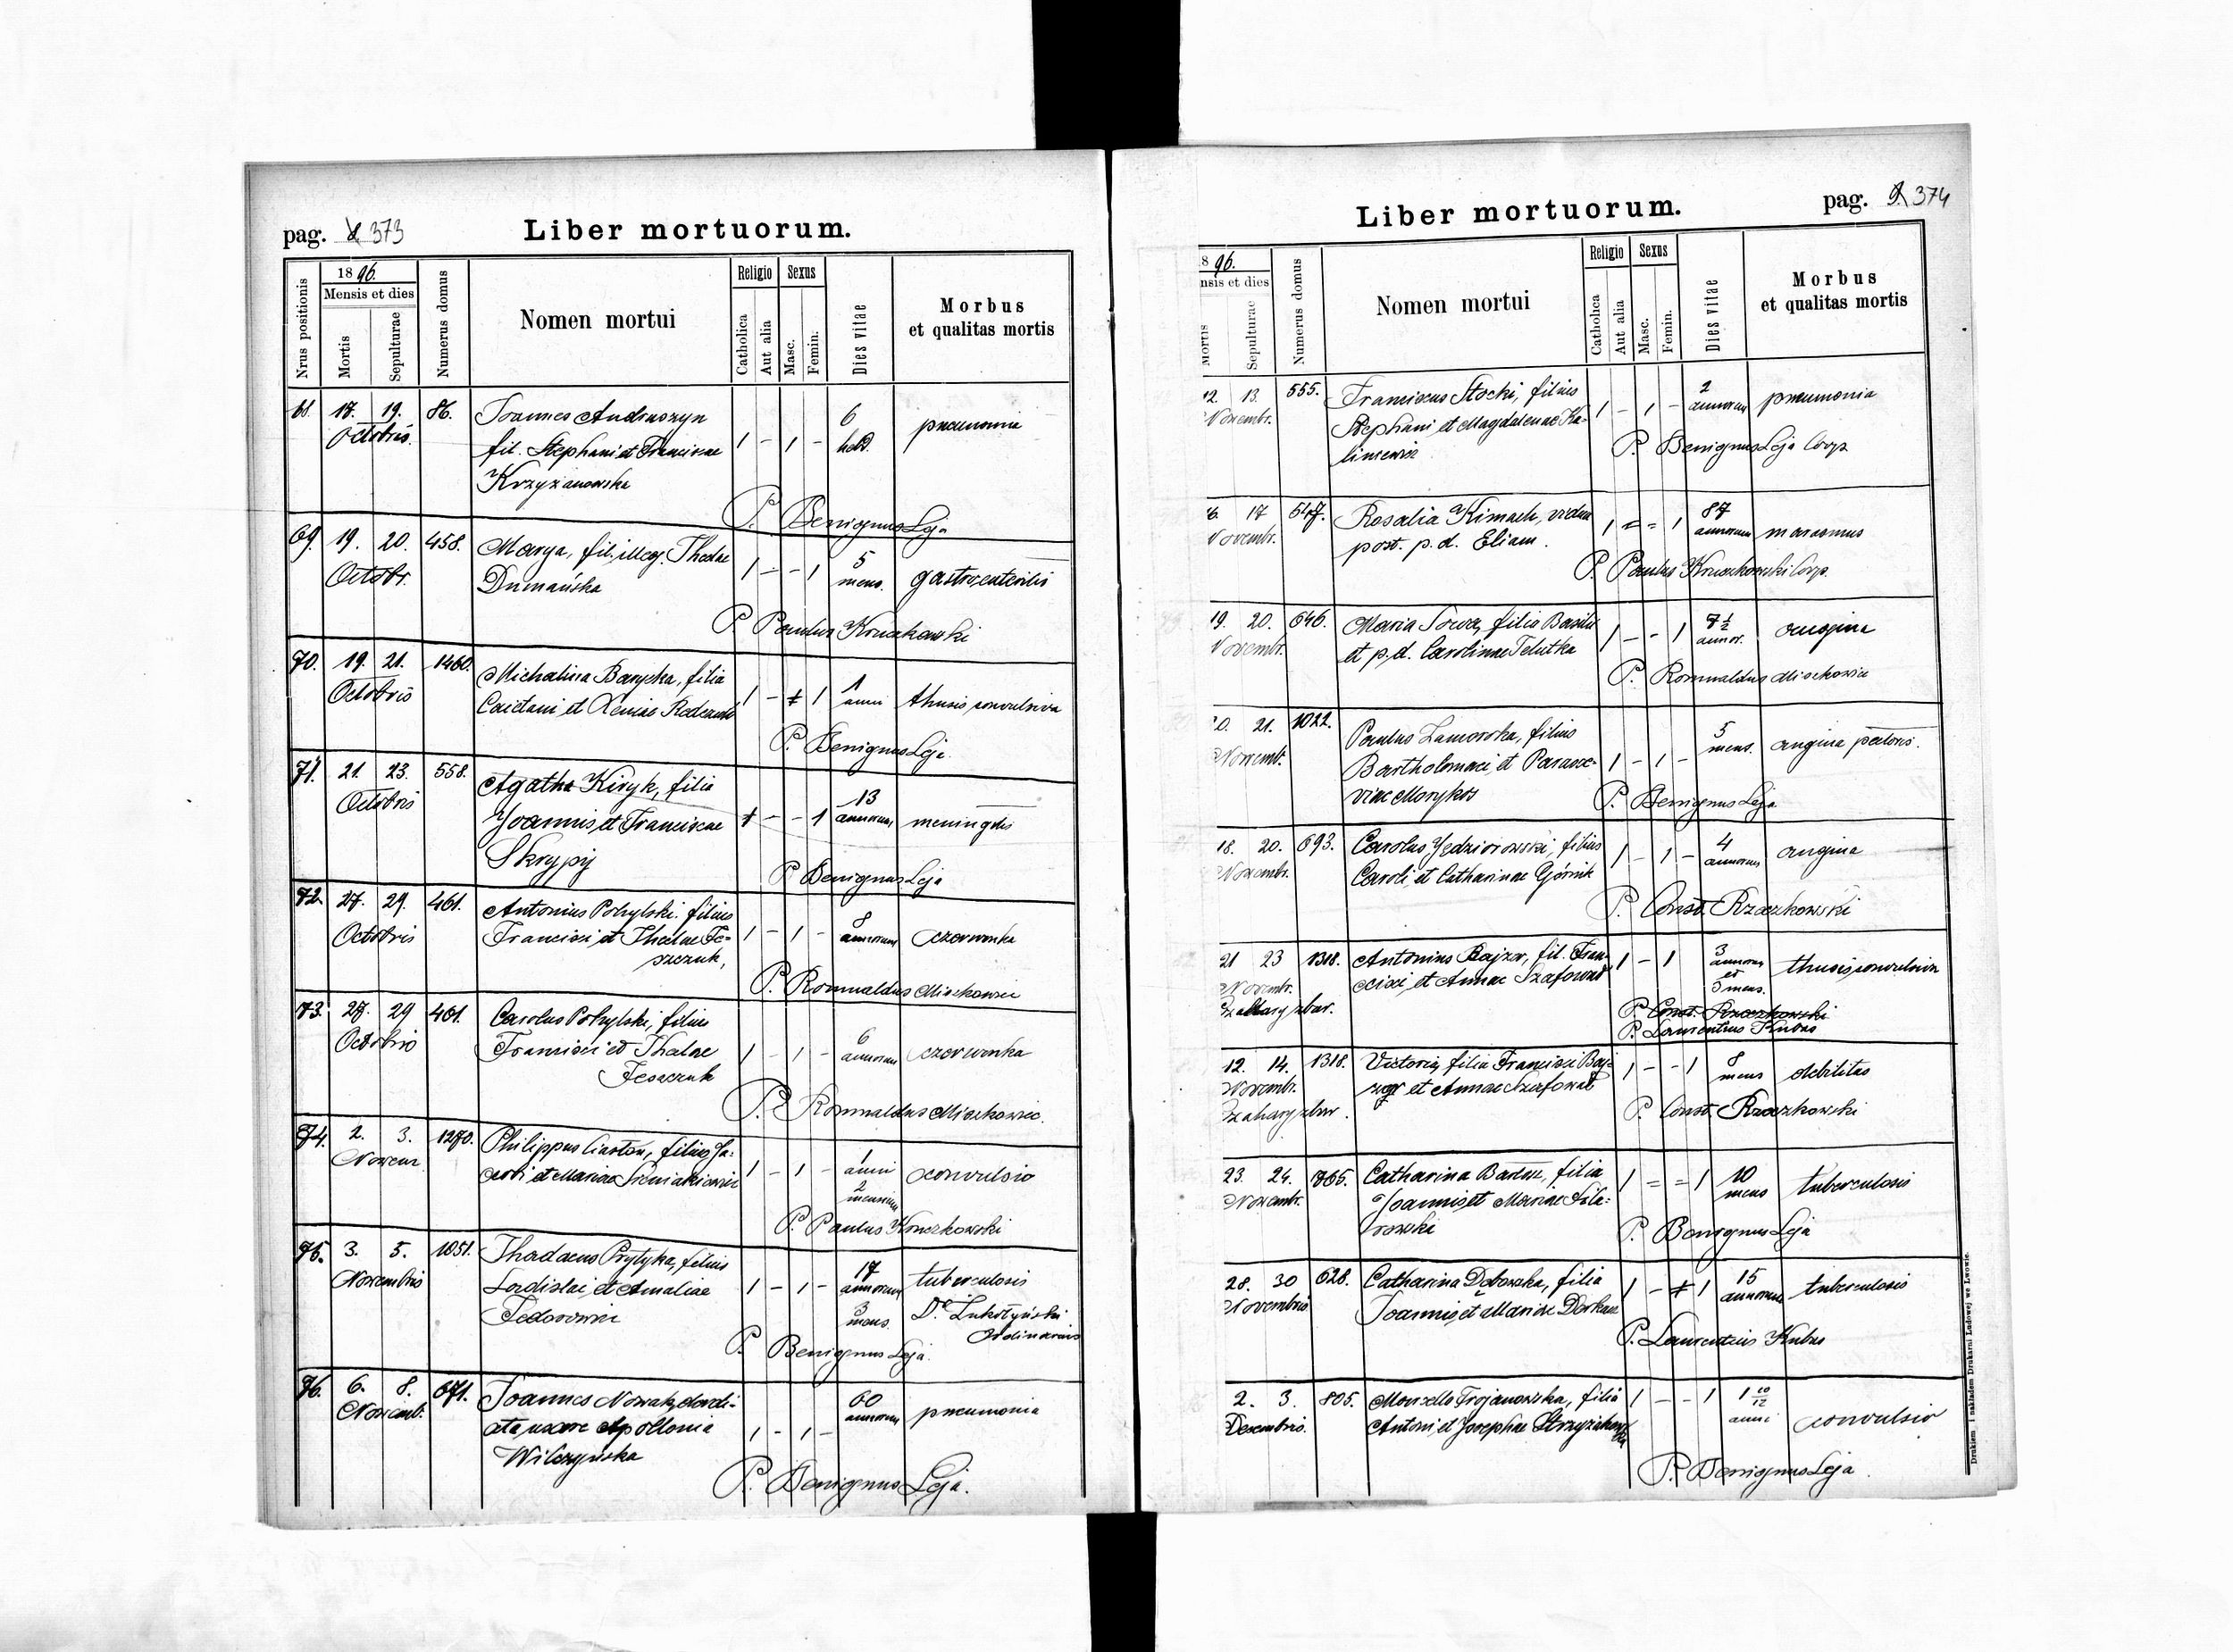 pag. 373
Liber mortuorum.
Nrus positionis
1896.
Mensis et dies
Mortis
Sepulturae
Numerus domus
Nomen mortui
Religio
Catholica
Aut alia
Sexus
Masc.
Femin.
Dies vitae
Morbus
et qualitas mortis
68. 17. 19. 86. Joannes Andruszyn 6 pneumonia
Octobris. fil. Stephani et Franciscae 1 - 1 - hebd.
Krzyżanowska
P. Benignus Leja
69. 19. 20. 458. Marya, fil. illeg. Theclae 1 - - 1 5 gastroenteritis
Octobr. Dumańska mens.
P. Paulus Kruczkowski
70. 19. 21. 1460. Michalina Baryska, filia 1 - 1 1 thusis convulsiva
Octobris Caietani et Xeniae anni
P. Benignus Leja.
71. 21. 23. 558. Agatha Kiryk, filia 13
Octobris Joannis et Franciscae 1 - - 1 annorum meningitis
Skrypij
P. Benignus Leja
72. 27. 29. 461. Antonius Pohylski. filius 8
Octobris Francisci et Theclae Fe- 1 - 1 - annorum czerwonka
szczuk,
P. Romualdus Miszkowic
73. 27. 29 461. Carolus Pohylski, filius 6
Octobris Francisci et Theclae 1 - 1 - annorum czerwonka
Feszczuk
P. Romualdus Miszkowic.
74. 2. 3. 1270. Philippus Ciastoń, filius Ja- 1
Novem. cobi et Mariae Sieniakiewicz 1 - 1 - anni convulsio
2
mensium
P. Paulus Kruczkowski
75. 3. 5. 1051. Thadaeus Prytyka, filius 17 tuberculosis
Novembris Ladislai et Amaliae 1 - 1 - annorum
Fedorowicz 3 Dr. Lukożyński
mens. Ordinarius
P. Benignus Leja.
76. 6. 8. 671. Joannes Nowak, 60 pneumonia
Novemb. uxore Apollonia 1 - 1 - annorum
Wilczyńska
P. Benignus Leja.
pag. 374
Liber mortuorum.
896.
nsis et dies
Mortis
Sepulturae
Numerus domus
Nomen mortui
Religio
Catholica
Aut alia
Sexus
Masc.
Femin.
Dies vitae
Morbus
et qualitas mortis
12. 13. 555. Franciscus Stocki, filius 2 pneumonia
Novembr. Stephani et Magdalenae Ka- 1 - 1 - annorum
liniewicz
P. Benignus Leja Coop.
6. 17 547. Rosalia Kimach, vidua 1 = = 1 87 marasmus
Novembr. post. p. d. Eliam. annorum
P. Paulus Kruczkowski Coop.
19. 20. 646. Maria Sowa, filia Basilii 1 - - 1 7 1/2 angina
Novembr. et p. d. Carolinae Telutka annor.
P. Romualdus Miszkowic
0. 21. 1022. Paulus Lamorska, filius 5 angina pectoris.
Novemb. Bartholomaei et Parasce- 1 - 1 - mens.
viae Morykos
P. Benignus Leja
18. 20. 693. Carolus Jędziorowski, filius 1 - 1 - 4 angina
Novembr. Caroli et Catharinae Górnik annorum
P. Const. Rzaczkowski
21 23 1318. Antonius Bajzar, fil. Fran- 1 - 1 3 thusis convulsiva
Novembr. cisci et Annae Szafowat annorum
et
5 mens.
P. Const. Rzaczkowski
P. Laurentius Kubas
12. 14. 1318. Victoria, filia Francisci Baj- 1 - - 1 8 debilitas
Novembr. zar et Annae Szafowat mens
P. Const. Rzaczkowski
23. 24. 765. Catharina Badusz, filia 1 = = 1 10 tuberculosis
Novembr. Joannis et Mariae Fila- mens
rowski
P. Benignus Leja
28. 30 628. Catharina Dębowska, filia 1 - 1 15 tuberculosis
Novembris Joannis et Mariae annorum
P. Laurentius Kubas
2. 3. 805. Trojanowska, filia 1 - - 1 1 10/12 convulsio
Decembris. Antoni et Josephae anni
P. Benignus Leja.
Drukiem i nakładem Drukarni Ludowej we Lwowie.